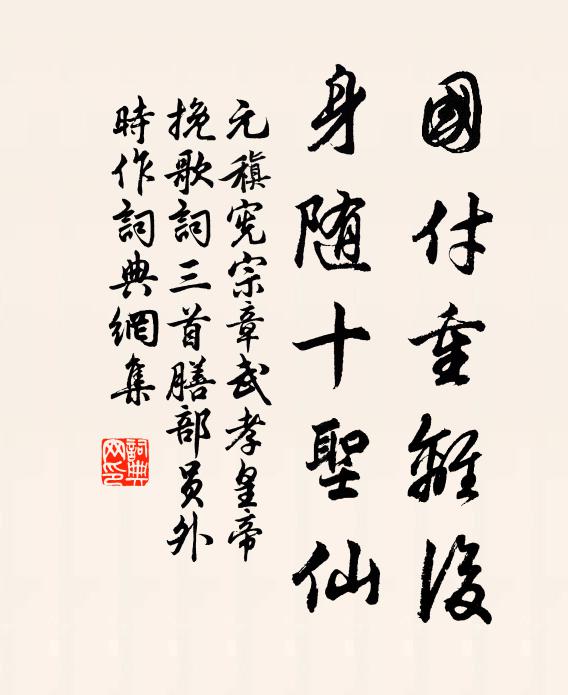 國付重離後
身随十聖仙
元稹憲宗章武孝皇帝
挽歌詞三首膳部员外
時作詞典網集
詞典網印